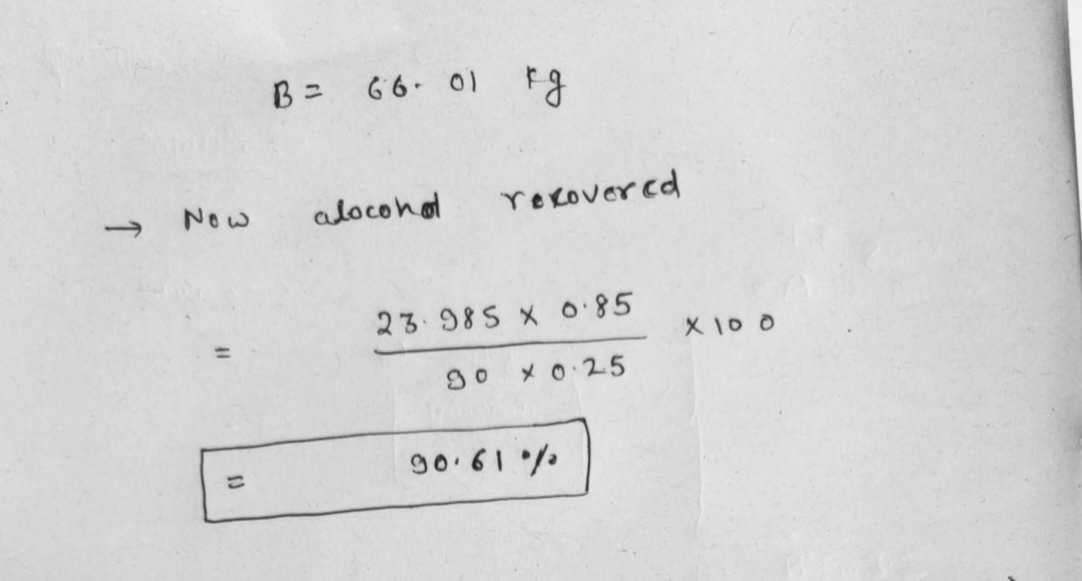 B = 66.01 kg
→ Now alocohol recovered
= 23.985 x 0.85 x 100
90 x 0.25
= 90.61 %